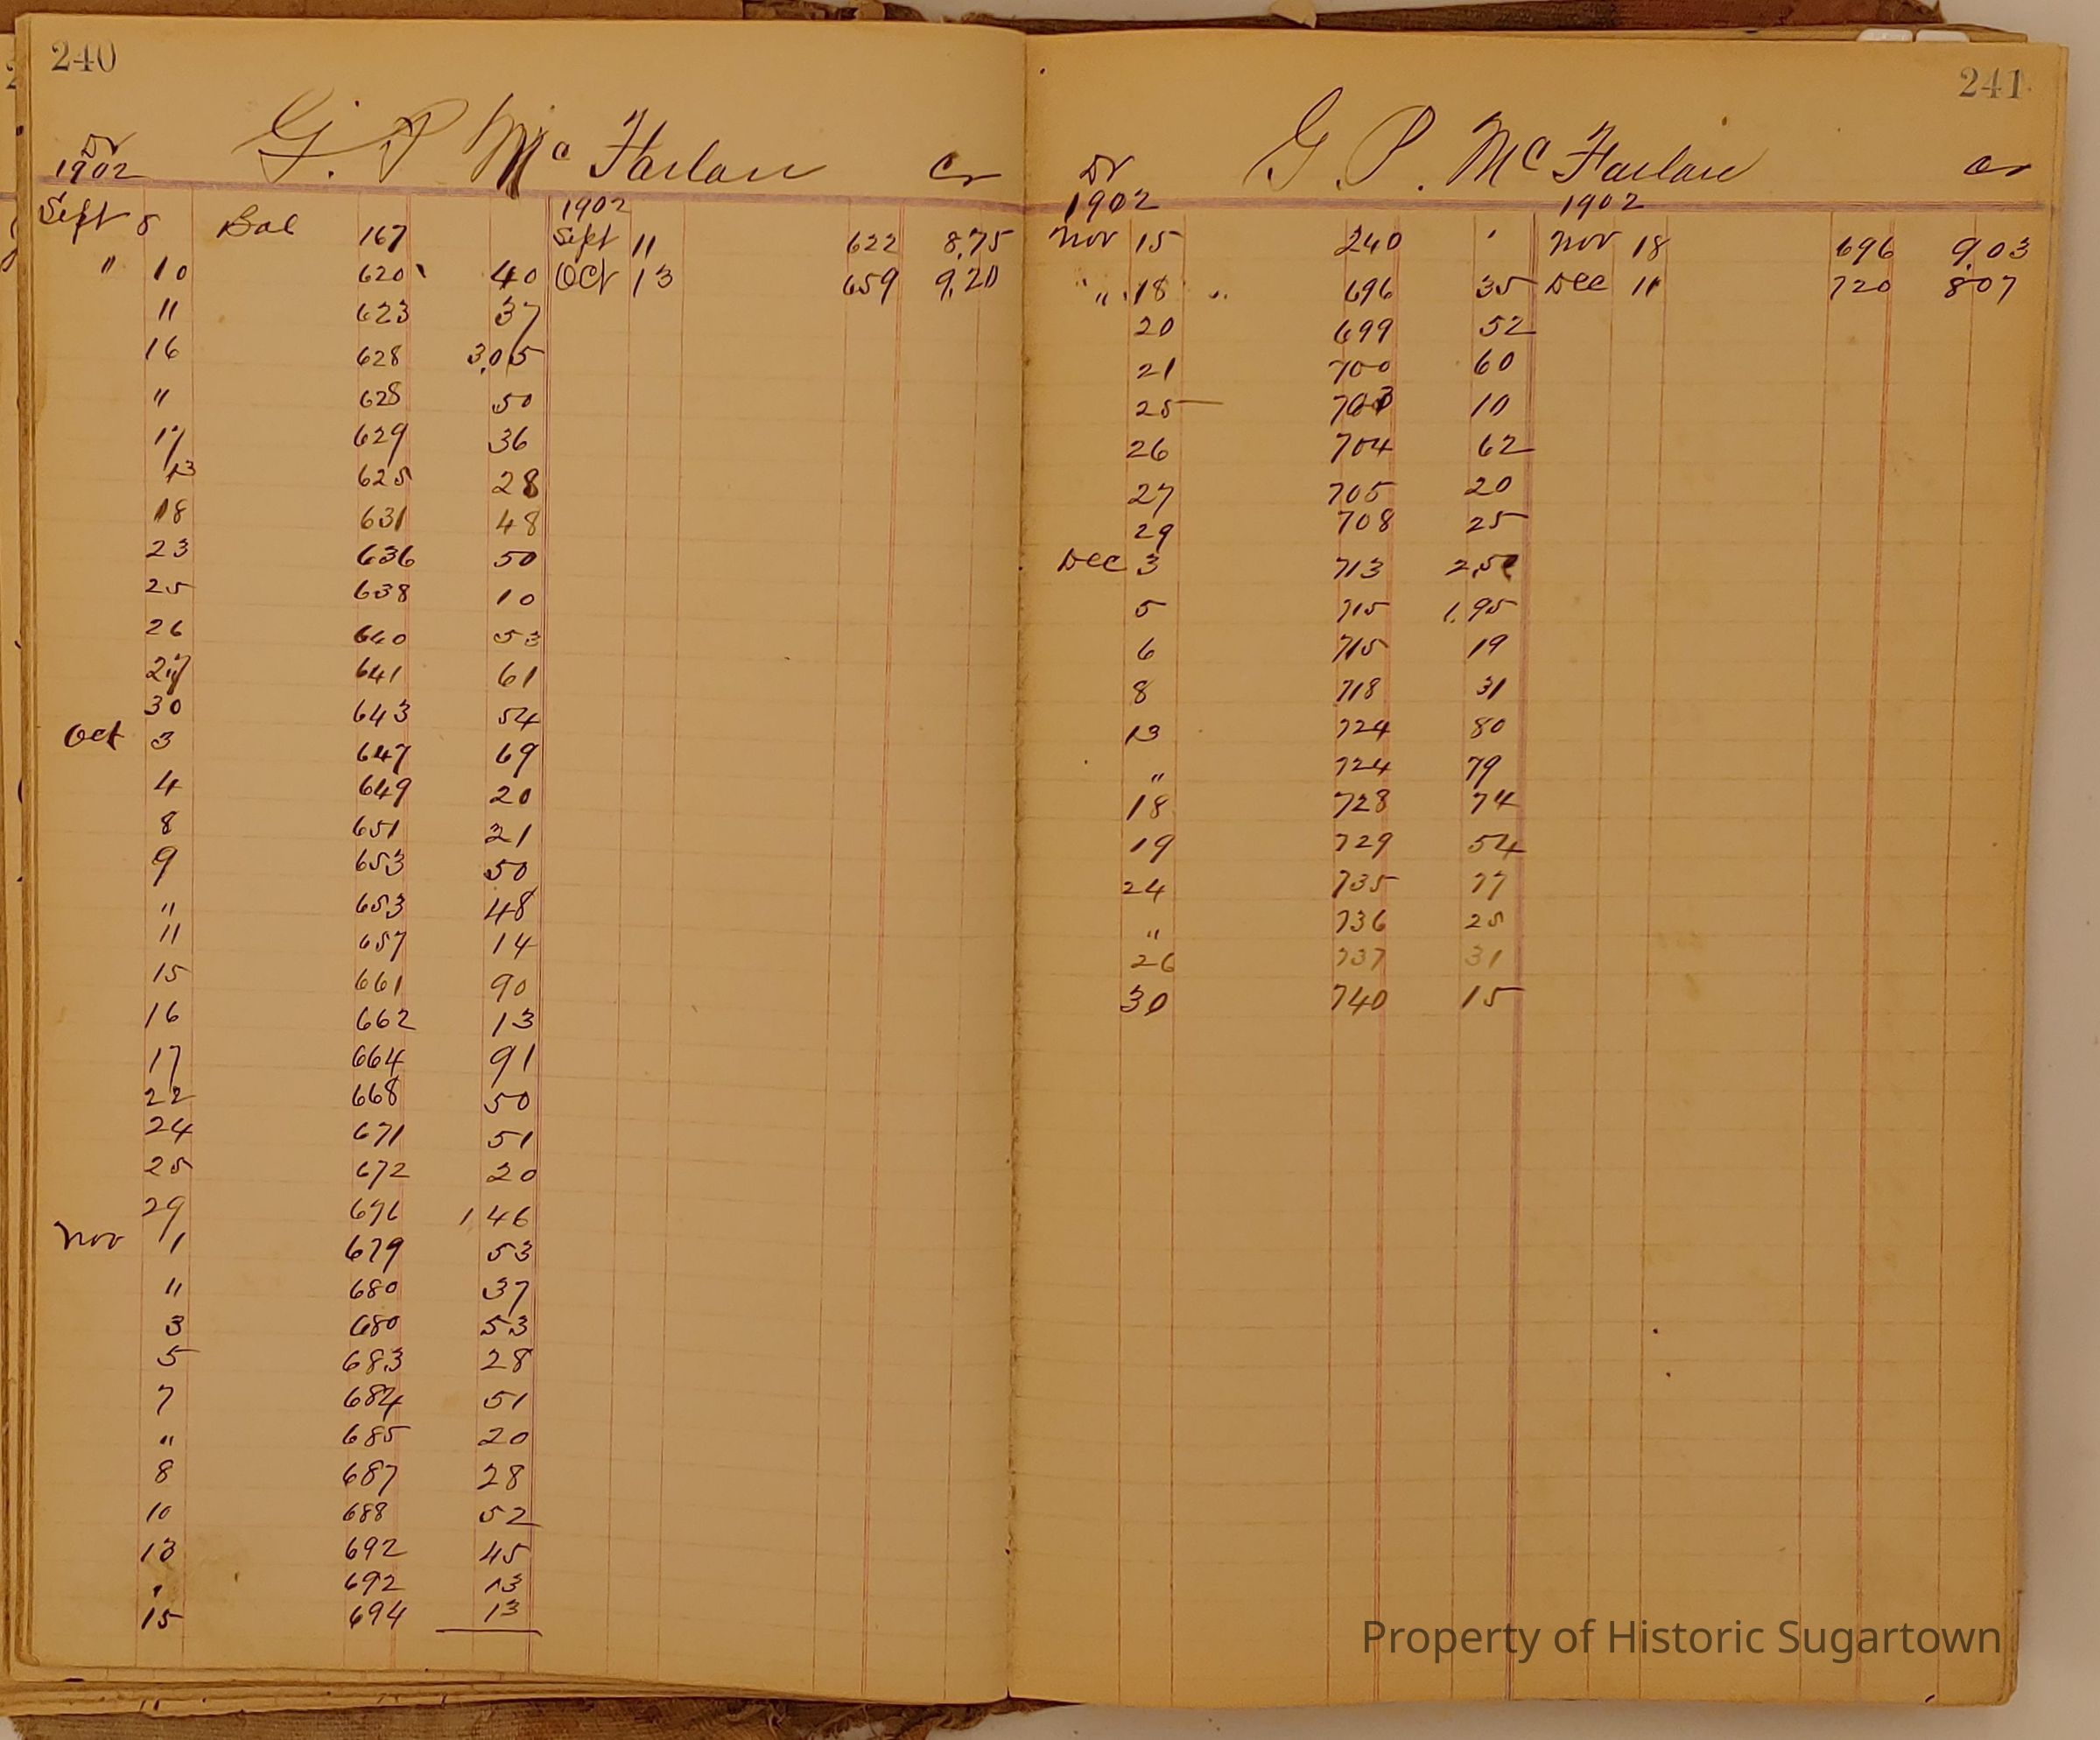 240
Dr G. P. McFarlan Cr
1902
1902
Sept 8 Bal 167 Sept 11 622 8.75
" 10 620 40 Oct 13 659 9.20
11 623 37
16 628 3.05
" 628 50
17 629 36
13 625 28
18 631 48
23 636 50
25 638 10
26 640 53
27 641 61
30 643 54
Oct 3 647 69
4 649 20
8 651 21
9 653 50
" 653 48
11 657 14
15 661 90
16 662 13
17 664 91
22 668 50
24 671 51
25 672 20
29 676 1 46
Nov 1 679 53
" 680 37
3 680 53
5 683 28
7 684 51
" 685 20
8 687 28
10 688 52
13 692 45
" 692 13
15 694 13
241
Dr G. P. McFarlan Cr
1902 1902
Nov 15 240 Nov 18 696 9.03
" 18 696 35 Dec 11 720 807
20 699 52
21 700 60
25 703 10
26 704 62
27 705 20
29 708 25
Dec 3 713 2.50
5 715 1.95
6 715 19
8 718 31
13 724 80
" 724 79
18 728 74
19 729 54
24 735 77
" 736 25
26 737 31
30 740 15
Property of Historic Sugartown